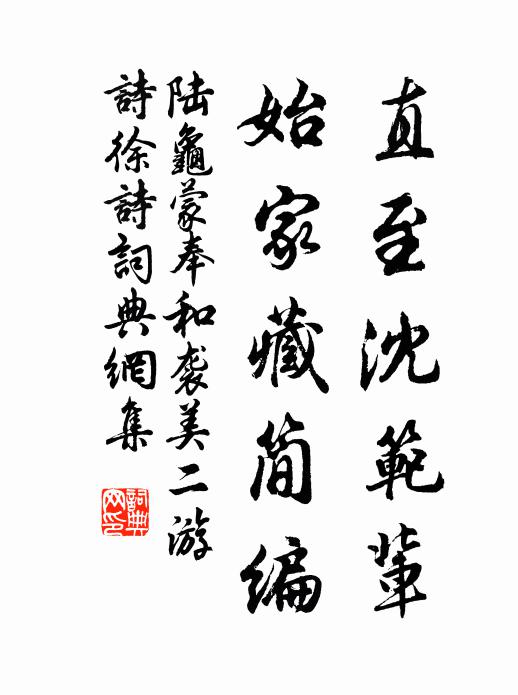 直至沈範輩
始家藏簡編
陸龜蒙奉和袭美二游
詩徐詩詞典網集
詞典網印